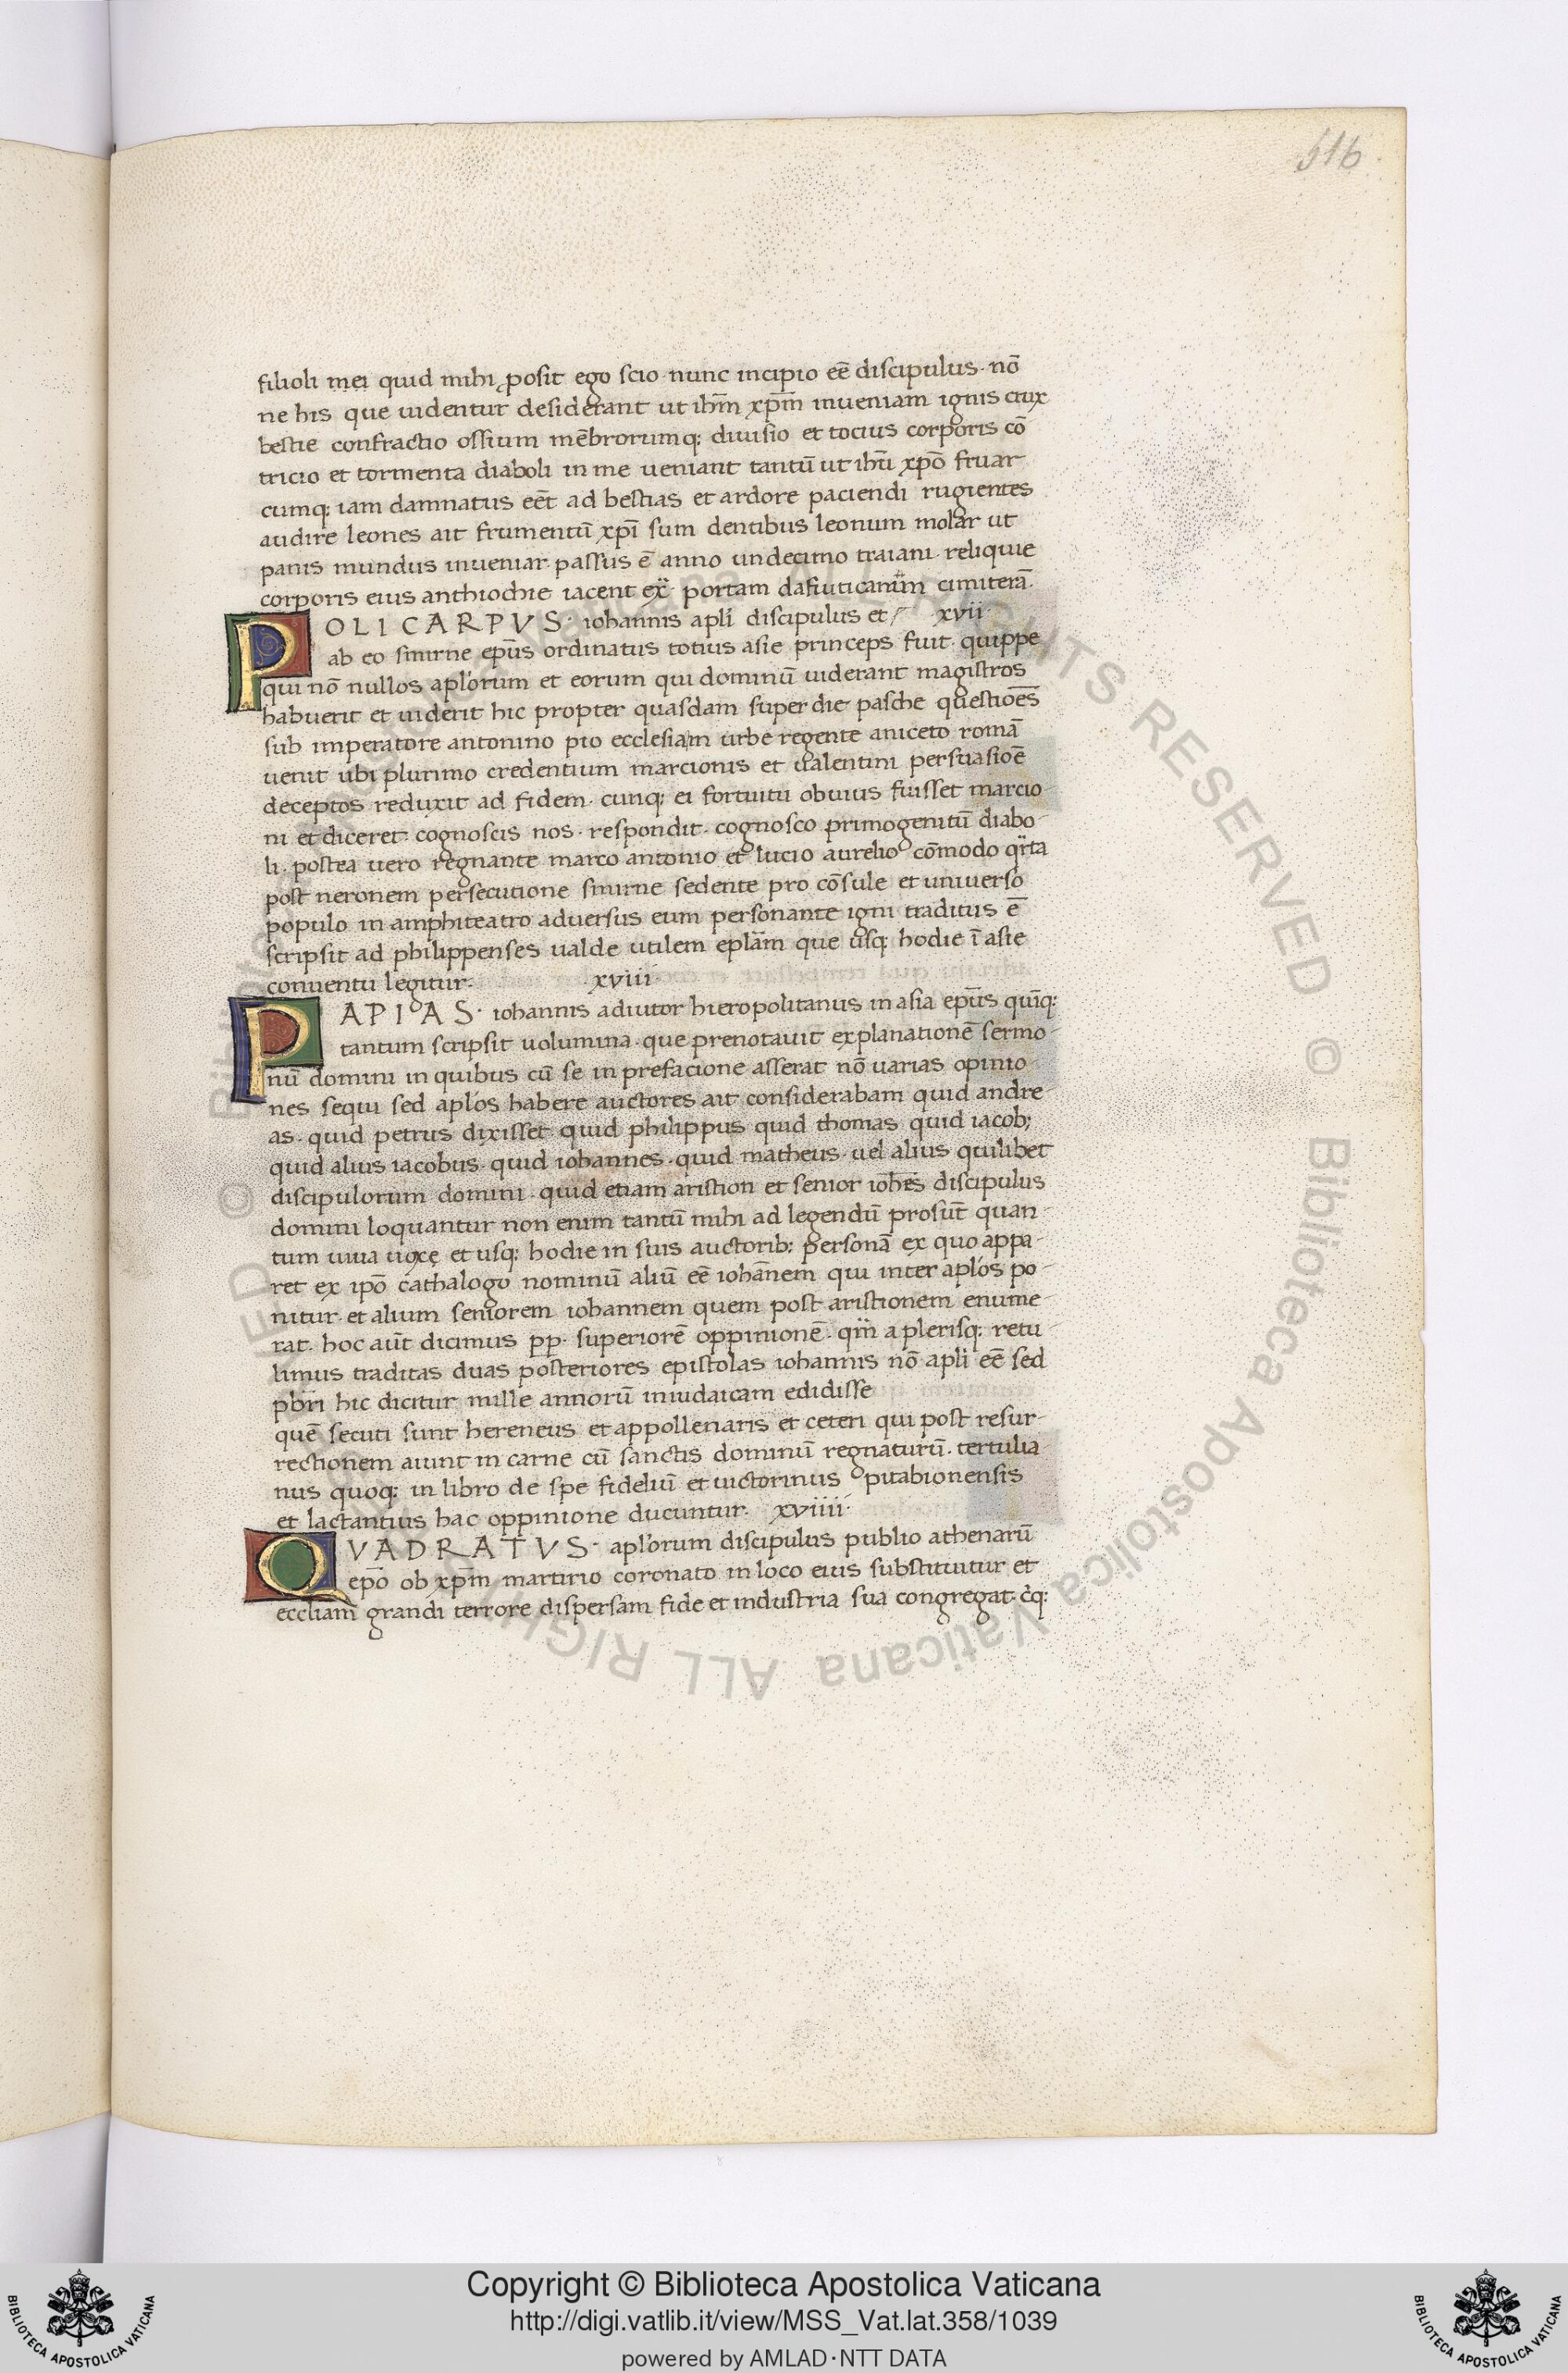 516
filioli mei quid mihi ꝓosit ego scio · nunc incipio eē discipulus · nō
ne his que uidentur desiderant ut ihm̄ xp̄m inueniam ignis crux
bestie confractio ossium mēbrorumq; diuisio et tocius corporis cō
tricio et tormenta diaboli in me ueniant tantū ut ihū xpō fruar
cumq; iam damnatus eēt ad bestias et ardore paciendi rugientes
audire leones ait frumentū xpī sum dentibus leonum molar ut
panis mundus inueniar · passus ē anno undecimo traiani · reliquie
corporis eius anthiochie iacent portam cimiterā ·
POLICARPVS · iohannis apl̄i discipulus et xvii ·
ab eo smirne ep̄us ordinatus totius asie princeps fuit · quippe
qui nō nullos apl̄orum et eorum qui dominū uiderant magistros
habuerit et uiderit hic propter quasdam super die pasche questioēs
sub imperatore antonino pio ecclesiam urbe regente aniceto romā
uenit ubi plurimo credentium marcionis et ualentini persuasioē
deceptos reduxit ad fidem · cunq; ei fortuitu obuius fuisset marcio
ni et diceret · cognoscis nos · respondit · cognosco primogenitū diabo
li · postea uero regnante marco antonio et lucio aurelio cōmodo qrta
post neronem persecutione smirne sedente pro cōsule et uniuerso
populo in amphiteatro aduersus eum personante igni traditus ē
scripsit ad philippenses ualde utilem epl̄am que usq; hodie ī asie
conuentu legitur · xviii
PAPIAS · iohannis adiutor hieropolitanus in asia ep̄us quīq;
tantum scripsit uolumina · que prenotauit explanationē sermo
nū domini in quibus cū se in prefacione asserat nō uarias opinio
nes sequi sed apl̄os habere auctores ait considerabam quid andre
as · quid petrus dixisset · quid philippus quid thomas quid iacob;
quid alius iacobus · quid iohannes · quid matheus · uel alius quilibet
discipulorum domini · quid etiam aristion et senior ioh̄es discipulus
domini loquantur non enim tantū mihi ad legendū prosūt quan
tum uiua uoce et usq; hodie in suis auctorib; personā ex quo appa
ret ex ipō cathalogo nominū aliū eē iohānem qui inter apl̄os po
nitur · et alium seniorem iohannem quem post aristionem enume
rat · hoc aūt dicimus pp · superiorē oppinionē · qm̄ a plerisq; retu
limus traditas duas posteriores epistolas iohannis nō apl̄i eē sed
pbr̄i hic dicitur mille annorū iniudaicam edidisse
quē secuti sunt hereneus et appollenaris et ceteri qui post resur
rectionem aiunt in carne cū sanctis dominū regnaturū · tertulia
nus quoq; in libro de spe fideliū et uictorinus pitabionensis
et lactantius hac oppinione ducuntur · xviiii ·
QVADRATVS · apl̄orum discipulus publio athenarū
epō ob xp̄m martirio coronato in loco eius substituitur et
eccliam̄ grandi terrore dispersam fide et industria sua congregat · cq;
© Biblioteca Apostolica Vaticana ALL RIGHTS RESERVED
Copyright © Biblioteca Apostolica Vaticana
http://digi.vatlib.it/view/MSS_Vat.lat.358/1039
powered by AMLAD·NTT DATA
BIBLIOTECA APOSTOLICA VATICANA
BIBLIOTECA APOSTOLICA VATICANA